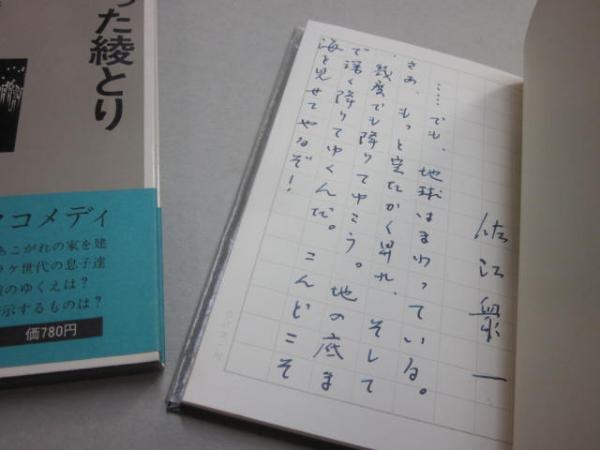 佐江衆一
……でも、地球はまわっている。
さあ、もっと空たかく昇れ、そして
、幾度でも降りてゆこう。地の底ま
で深く降りてゆくんだ。こんどこそ
海を見せてやるぞ！
った綾とり
コメディ
あこがれの家を建
ケ世代の息子達
のゆくえは？
示するものは？
価780円